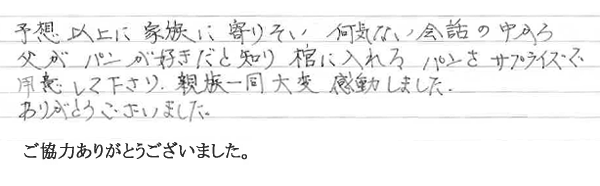 予想以上に家族に寄りそい 何気ない会話の中から
父が パンが好きだと知り 棺に入れる パンを サプライズで
用意して下さり、親族一同大変 感動しました。
ありがとうございました。
ご協力ありがとうございました。